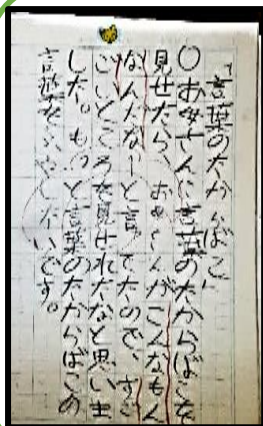 「言葉のたからばこ」
○お母さんに言葉のたからばこを
見せたら、お母さんがこんなもん
なんだなーと言ってたので、すご
いところを見せれたなと思いま
した。もっと言葉のたからばこの
言葉をふやしたいです。